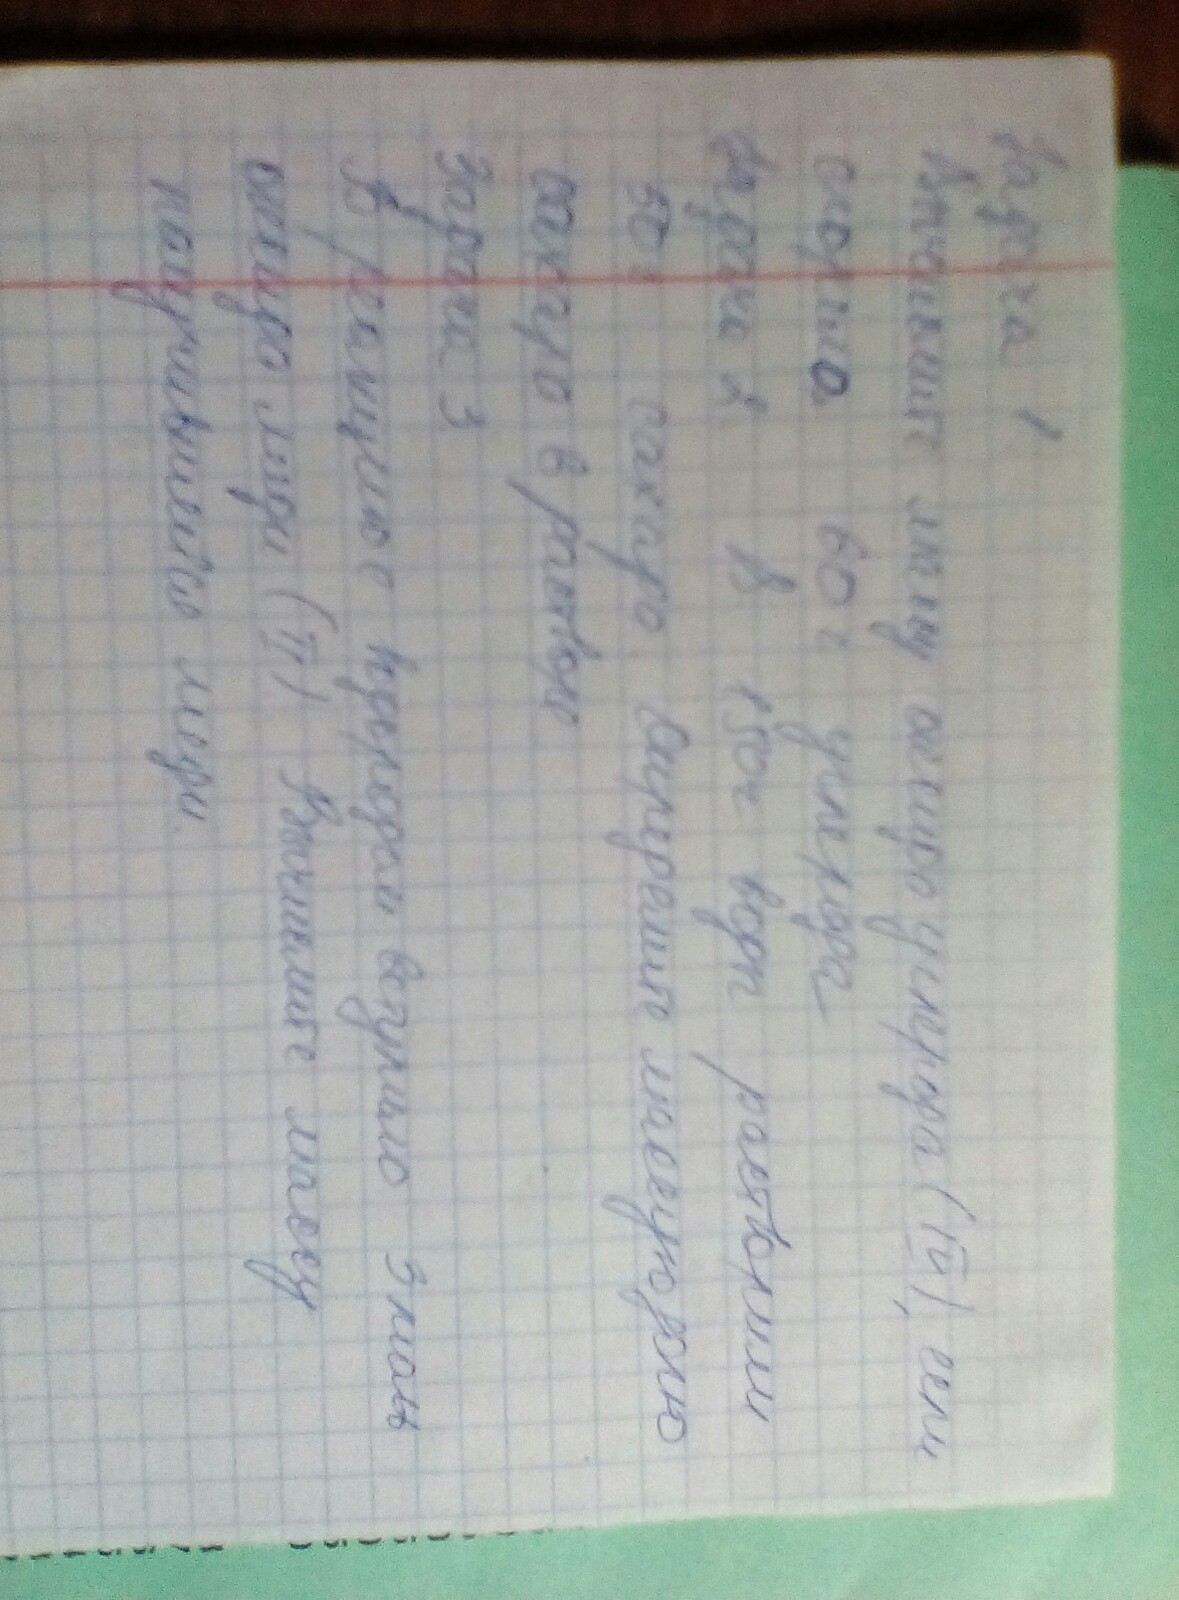 Задача 1.
Вычислит массу оксида углерода (IV), если
сгорело 60 г углерода
Задача 2 В 150г воды растворили
50г сахара. Определите массовую долю
сахара в растворе
Задача 3
В реакцию с водородом вступило 3 моль
оксида меди (II) Вычислите массу
получившейся меди.